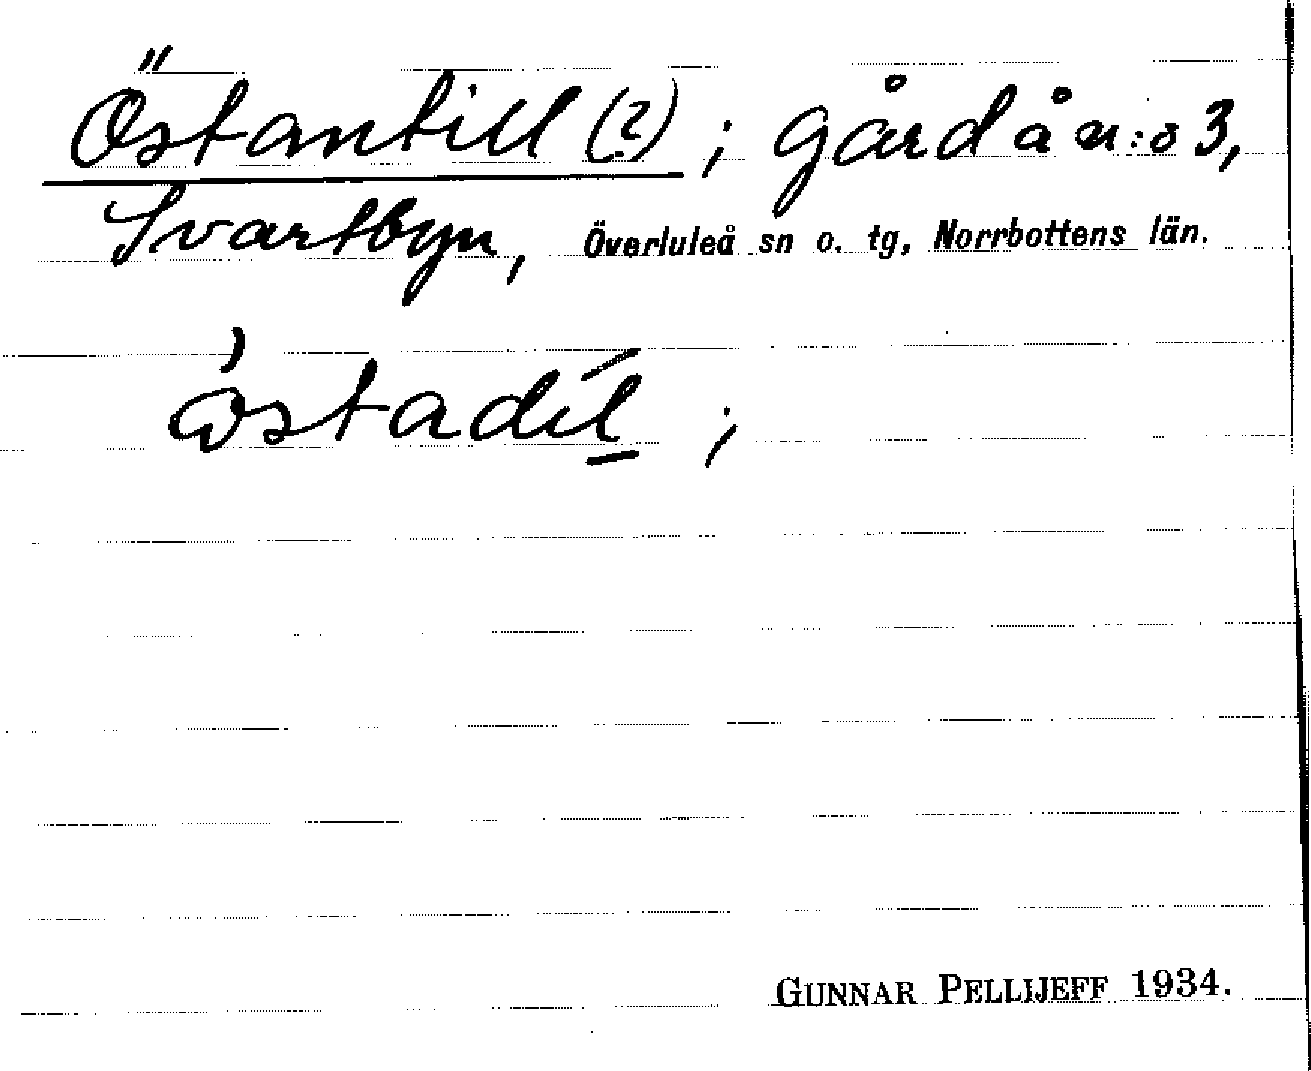 Östantill (?) ; gård å n:o 3,
Svartbyn, Överluleå sn o. tg, Norrbottens län.
;
GUNNAR PELLIJEFF 1934.